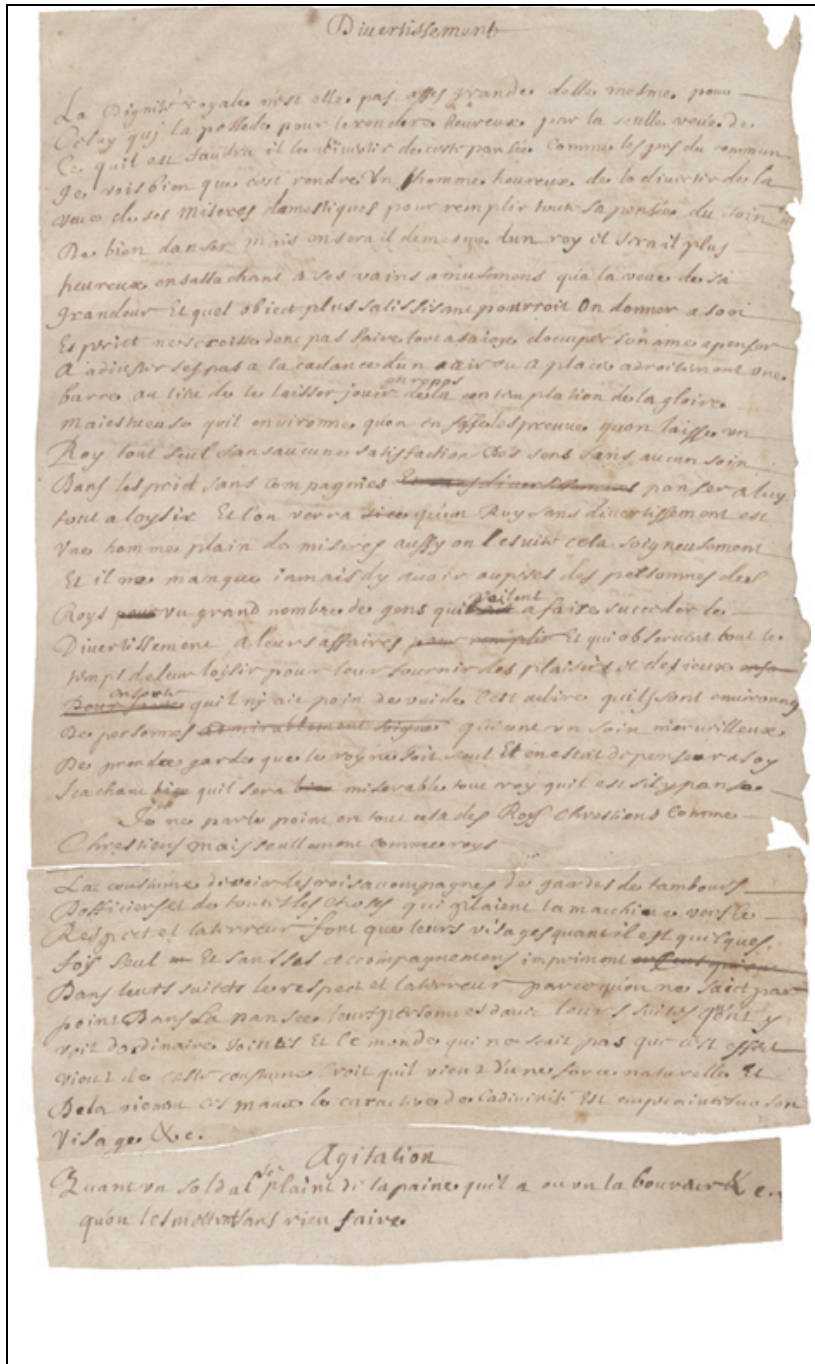 Divertissement
La Dignité royale n'est elle pas assés grande delle mesme pour
Celuy quj la possede pour le rendre heureux par la seulle veüe de
Ce quil est faudra il le divertir de cette pansée Comme les gens du commun
Je vois bien que cest rendre Un homme heureux de le divertir de la
veüe de ses miseres domestiques pour remplir toute sa pensée du soin
De bien danser mais en sera il de mesme dun roy et sera il plus
heureux en sattachant a ses vains amusemens qua la veue de sa
grandeur Et quel obiect plus satissfaisant pourroit On donner a son
Esperict ne seroit ce donc pas faire tort a sa ioye doccuper son ame a penser
A adiuster ses pas a la cadance dun air ou a placer adroitement une
barre au lieu de le laisser jouir en repos de la contemplation de la gloire
maiestueuse quil environne quon en fasse lespreuve quon laisse un
Roy tout seul sans aucune satisfaction Des sens sans aucun soin
Dans lesprit sans compagnies Et sans divertissemens panser a luy
tout a loysir Et l'on verra qu'un Roy sans divertissement est
Une homme plain de miseres aussy on l'esvite cela soigneusement
Et il ne manque iamais dy avoir aupres des personnes des
Roys pour un grand nombre de gens qui veilent a faire succeder le
Divertissement a leurs affaires pour remplir Et qui observent tout le
temps de leur loisir pour leur fournir des plaisirs et des ieux
Pour faire en sorte quil nj ait poin de vuide Cest adire quils sont environnes
De personnes admirablement soigne qui ont un soin merveilleux
De prendre garde que le roy ne soit seul Et en estat de penser a soy
Scachant bien quil sera bien miserable tout roy quil est sil y panse
Je ne parle point en tout cela des Roys Chrestiens Comme
Chrestiens mais seullement comme roys
La coustume de voir les rois accompagnes de gardes de tambours
Dofficiers et de toutes les choses qui plaient la macchine vers le
Respect et la terreur font que leurs visages quant il est quelques
fois seul Et sans ses accompagnemens impriment
Dans leurs suiets le respect et la terreur parce qu'on ne sait pas
point Dans La pansée leurs personnes davec leurs suites qu'on y
voit dordinaire Jointes Et le monde qui ne scait pas que cest effect
vient de ceste coustume Croit quil vient d'une force naturelle Et
De la vienent ces maux le caractere de La divinité Est empraint sur son
Visage &c.
Agitation
Quant un soldat se plaint de la paine quil a ou un laboureur &c.
quon les mettent sans rien faire